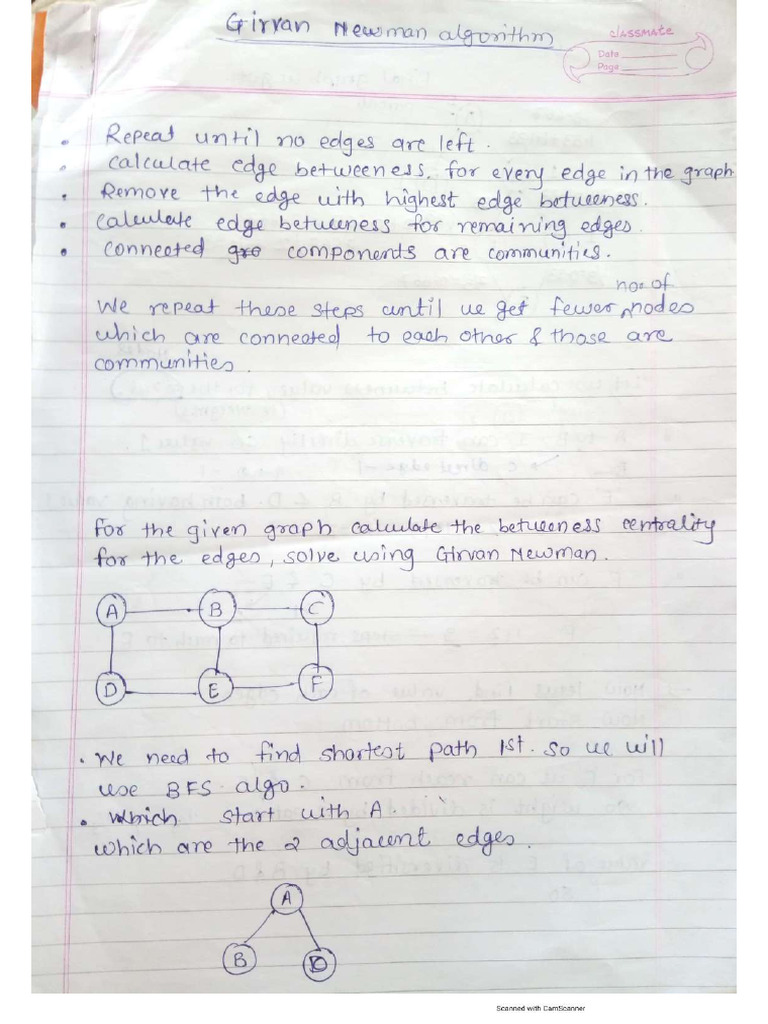 Girvan Newman algorithm
classmate
Date
Page
• Repeat until no edges are left.
• calculate edge betweeness, for every edge in the graph
• Remove the edge with highest edge betweeness.
• calculate edge betweeness for remaining edges.
• connected gro components are communities.
no. of
We repeat these steps until we get fewer nodes
which are connected to each other & those are
communities.
For the given graph calculate the betweeness centrality
for the edges, solve using Girvan Newman.
A B C
D E F
• We need to find shortest path 1st. so we will
use BFS algo.
• which start with A
which are the 2 adjacent edges.
A
B D
Scanned with CamScanner